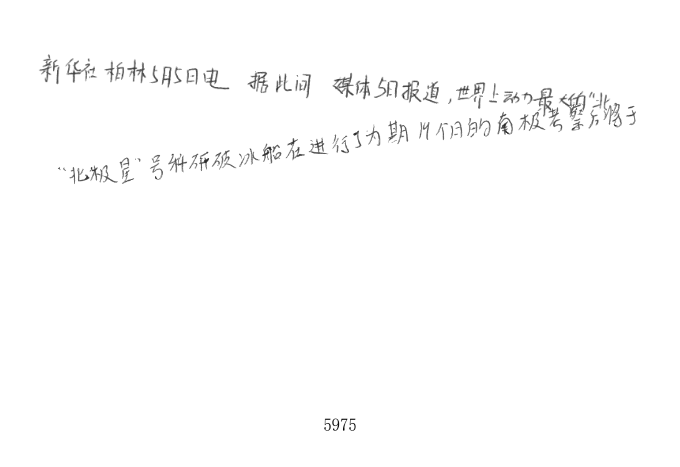 新华社柏林5月5日电 据此间 媒体5日报道,世界上动力最大的"北
"北极星"号科研破冰船在进行了为期19个月的南极考察后将于
5975